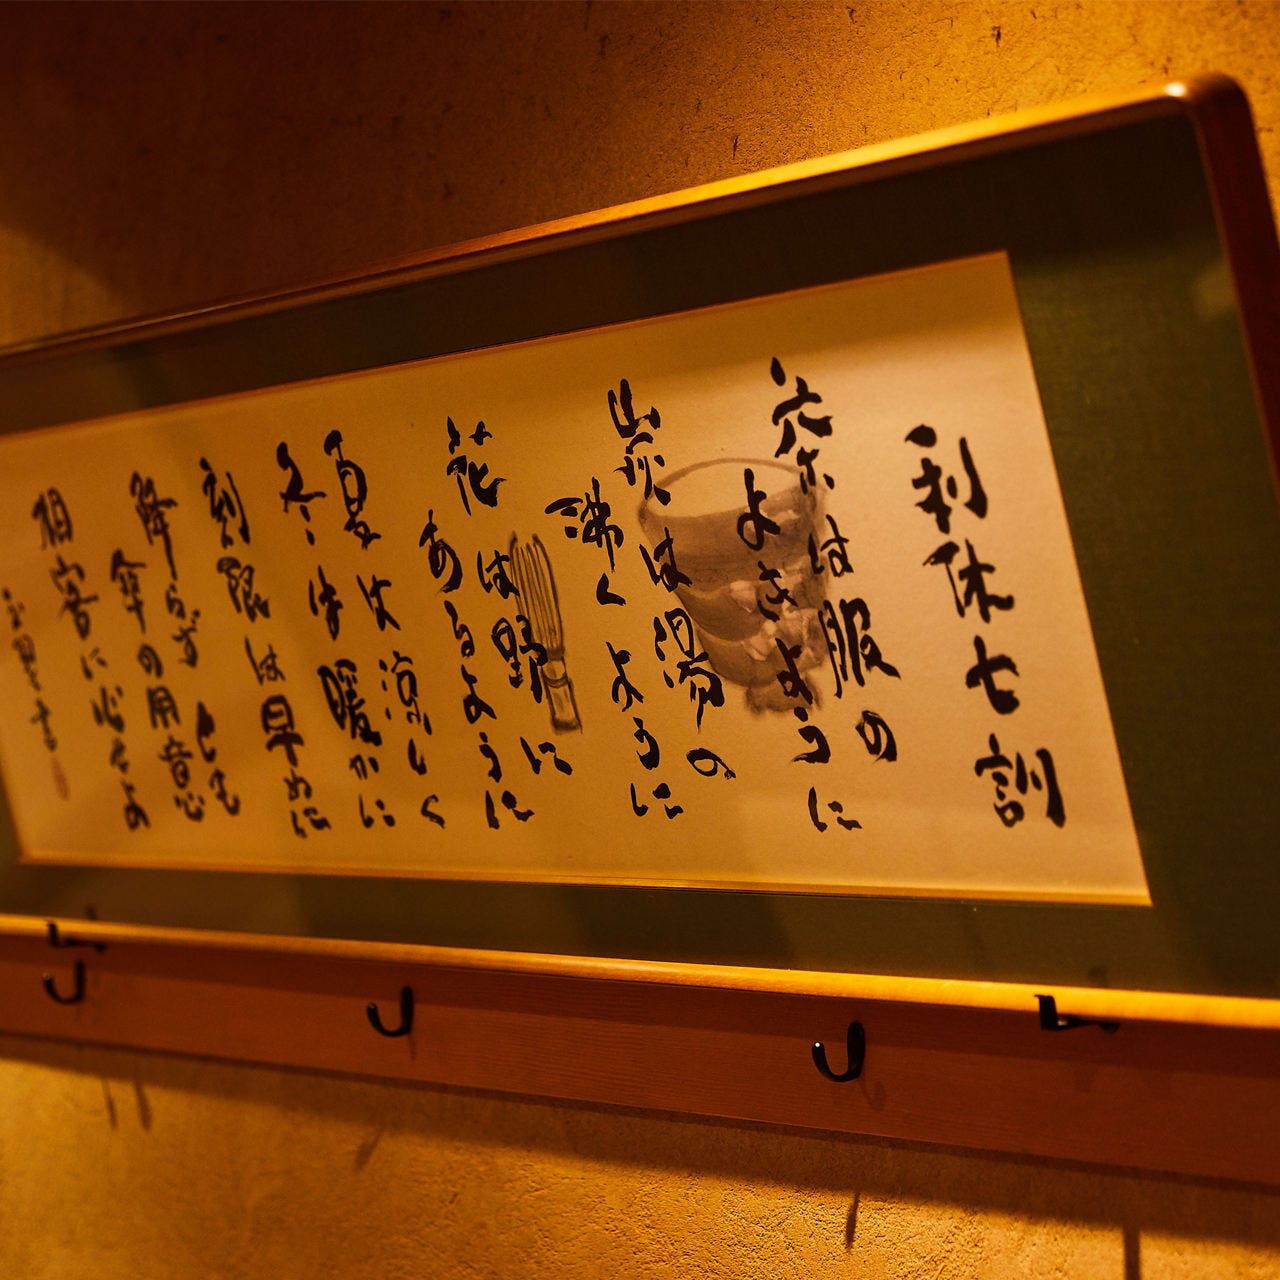 利休七訓
茶は服の
よきように
炭は湯の
沸くように
花は野に
あるように
夏は涼しく
冬は暖かに
刻限は早めに
降らずとも
傘の用意
相客に心せよ